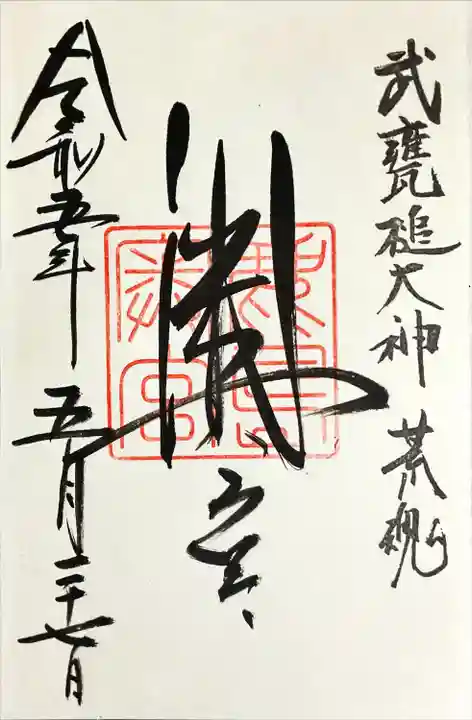 武甕槌大神 荒魂
奥宮
鹿島
奥宮
令和五年 五月二十七日